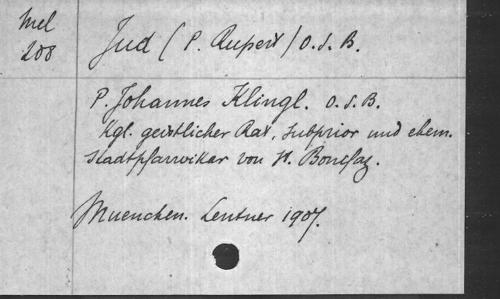 Mel
208
Jud (P. Rupert) O.S.B.
P. Johannes Klingl. O.S.B.
Kgl. geistlicher Rat, Subprior und ehem.
Stadtpfarrvikar von St. Bonifaz.
Muenchen. Lentner 1907.